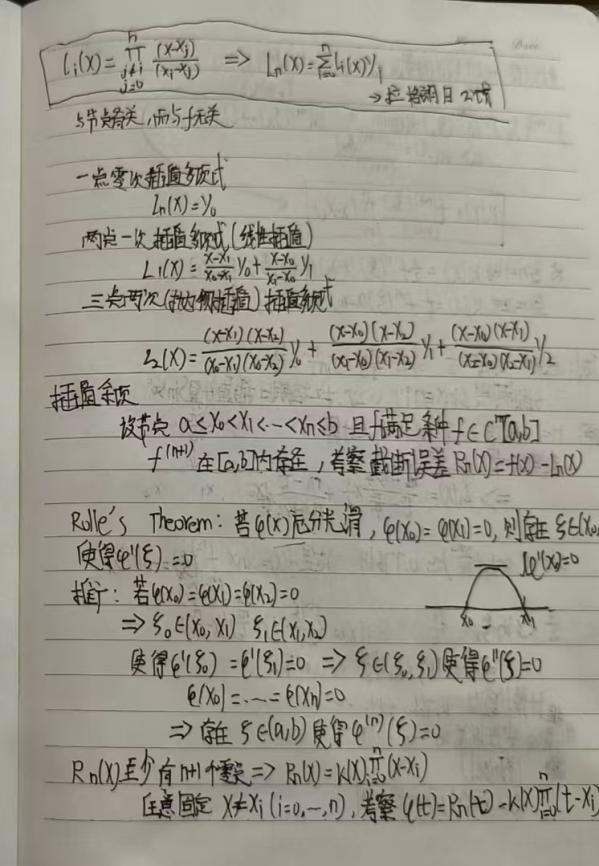 lᵢ(x) = ∏ⁿ_{j≠i, j=0} (x-xⱼ)/(xᵢ-xⱼ) => Lₙ(x) = ∑ⁿ_{i=0} lᵢ(x)yᵢ
→ 拉格朗日
与节点有关,而与f无关
一点零次插值多项式
Lₙ(x) = y₀
两点一次插值多项式(线性插值)
L₁(x) = (x-x₁)/(x₀-x₁) y₀ + (x-x₀)/(x₁-x₀) y₁
三点两次(抛物线插值)插值多项式
L₂(x) = (x-x₁)(x-x₂)/(x₀-x₁)(x₀-x₂) y₀ + (x-x₀)(x-x₂)/(x₁-x₀)(x₁-x₂) y₁ + (x-x₀)(x-x₁)/(x₂-x₀)(x₂-x₁) y₂
插值余项
设节点 a≤x₀<x₁<…<xₙ≤b 且f满足条件 f∈Cⁿ[a,b]
f⁽ⁿ⁺¹⁾在[a,b]内存在,考察截断误差 Rₙ(x)=f(x)-Lₙ(x)
Rolle's Theorem: 若φ(x)充分光滑,φ(x₀)=φ(x₁)=0,则存在 ξ∈(x₀,
使得φ'(ξ)=0
φ'(x₀)=0
x₀ x₁
推广:若φ(x₀)=φ(x₁)=φ(x₂)=0
=> ξ₀∈(x₀,x₁) ξ₁∈(x₁,x₂)
使得φ'(ξ₀)=φ'(ξ₁)=0 => ξ∈(ξ₀,ξ₁)使得φ''(ξ)=0
φ(x₀)=……=φ(xₙ)=0
=> 存在 ξ∈(a,b)使得φ⁽ⁿ⁾(ξ)=0
Rₙ(x)至少有n+1个零点 => Rₙ(x)=k(x)∏ⁿ_{i=0}(x-xᵢ)
任意固定 x≠xᵢ(i=0,…,n),考察 φ(t)=Rₙ(t)-k(x)∏ⁿ_{i=0}(t-xᵢ)